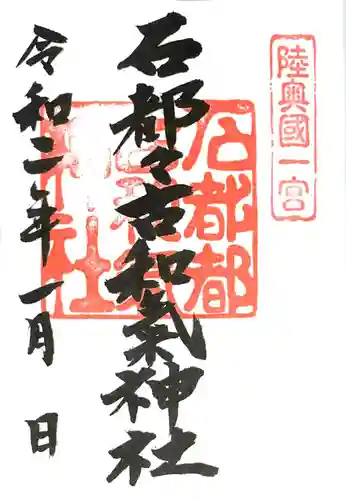 陸奥國一宮
石都々古和氣神社
石都都
令和二年一月 日